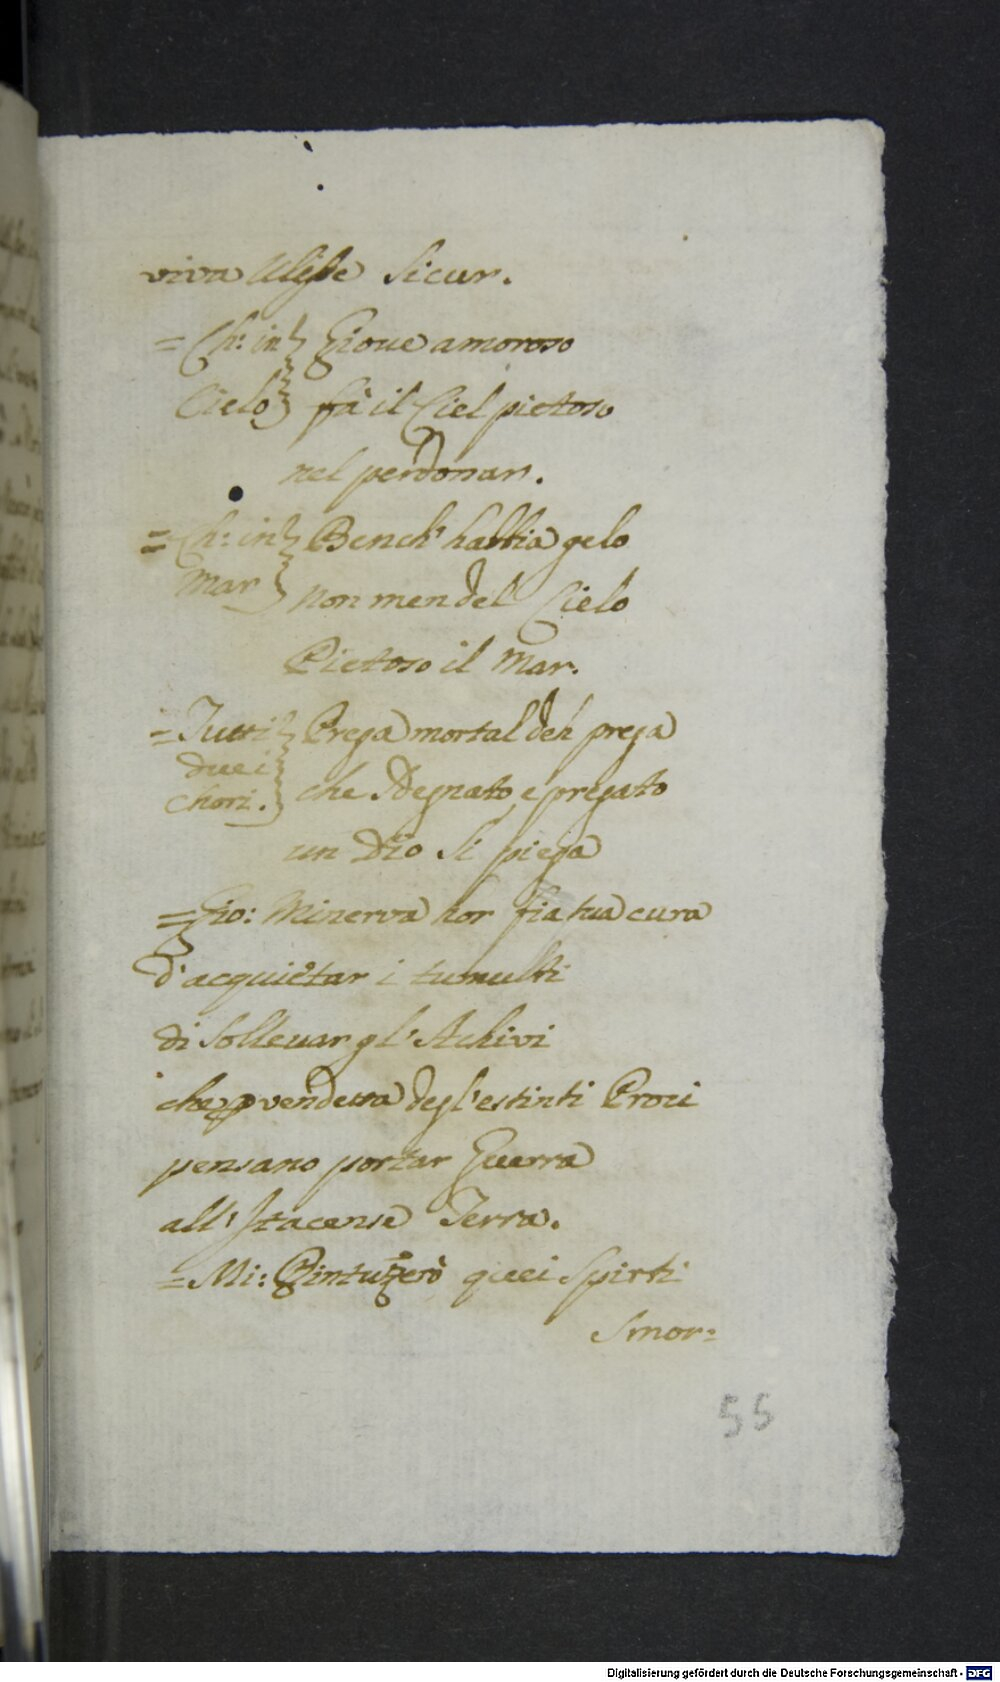 viva Ulisse Sicur.
=Ch: in Gioue amoroso
Cielo fà il Ciel pietoso
nel perdonar.
=Ch: in Bench' habbia gelo
Mar non men del Cielo
Pietoso il Mar.
=Tutti Prega mortal deh prega
duei
Chori. che Sdegnato, e pregato
un Dio Si piega
=Gio: Minerva hor fia tua cura
d'acquietar i tumulti
di Solleuar gl'Achivi
che p vendetta degl'estinti Proci
pensano portar Guerra
all'Itacense Terra.
=Mi: quei Spirti
Smor=
55
Digitalisierung gefördert durch die Deutsche Forschungsgemeinschaft - DFG